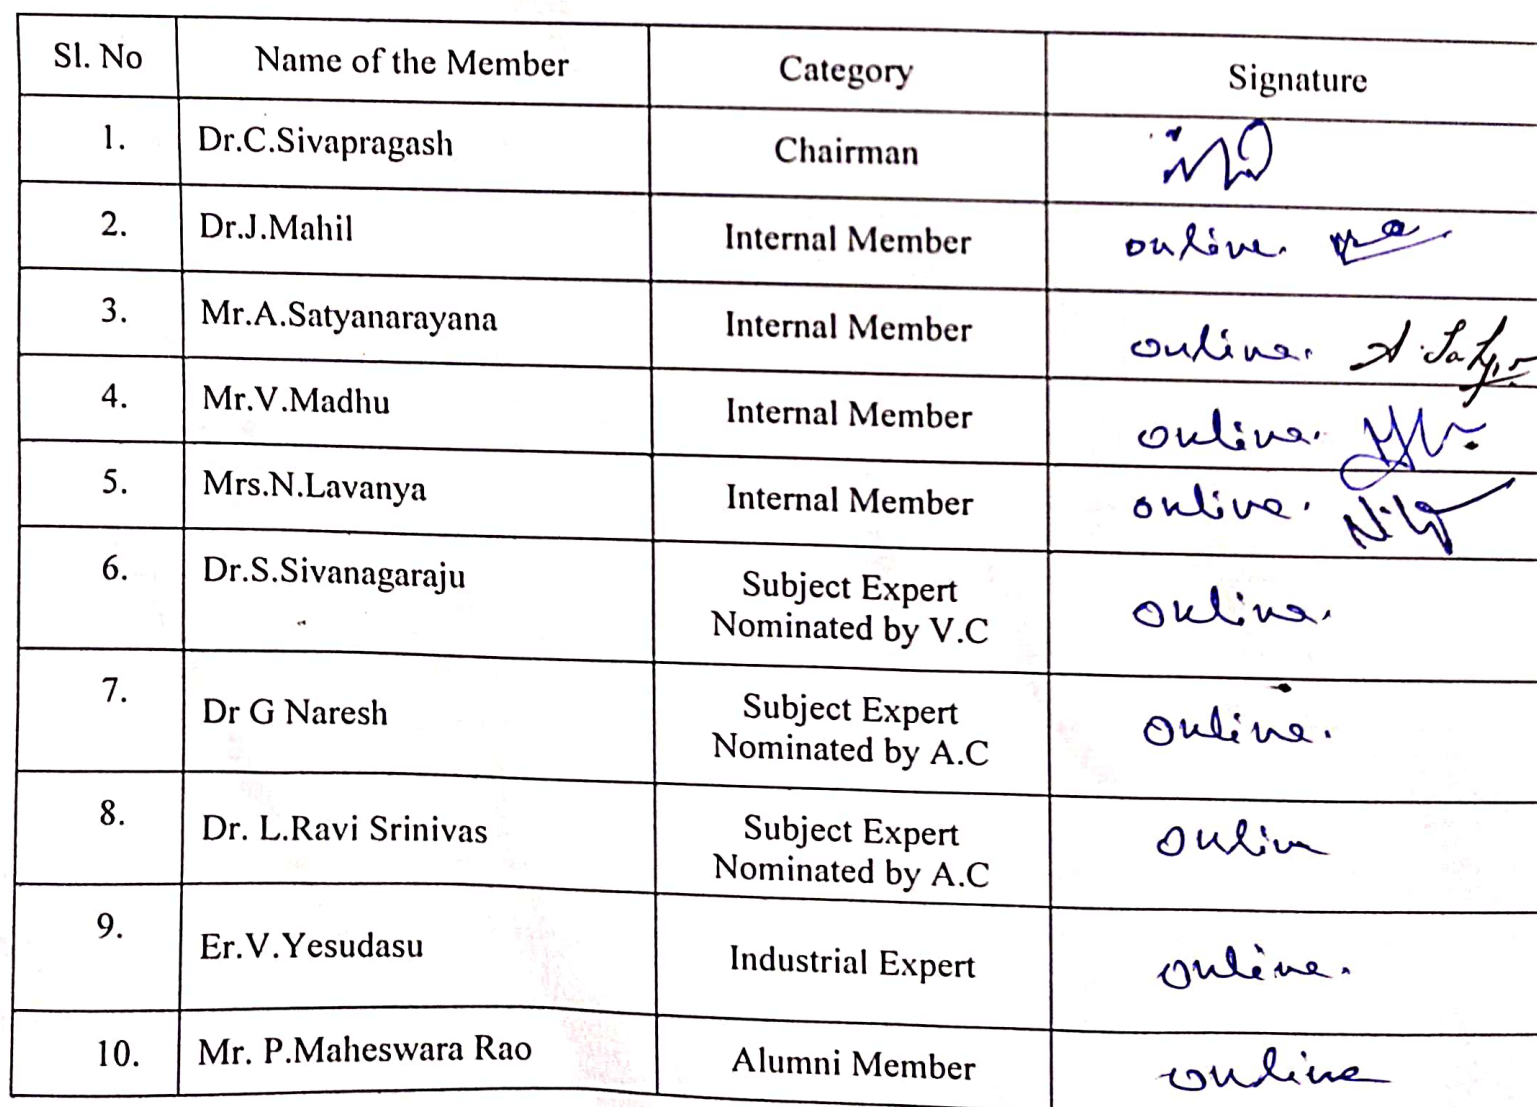 Sl. No Name of the Member Category Signature
1. Dr.C.Sivapragash Chairman
2. Dr.J.Mahil Internal Member online.
3. Mr.A.Satyanarayana Internal Member online. A. Satya
4. Mr.V.Madhu Internal Member online.
5. Mrs.N.Lavanya Internal Member online.
6. Dr.S.Sivanagaraju Subject Expert
Nominated by V.C online.
7. Dr G Naresh Subject Expert
Nominated by A.C online.
8. Dr. L.Ravi Srinivas Subject Expert
Nominated by A.C online
9. Er.V.Yesudasu Industrial Expert online.
10. Mr. P.Maheswara Rao Alumni Member online